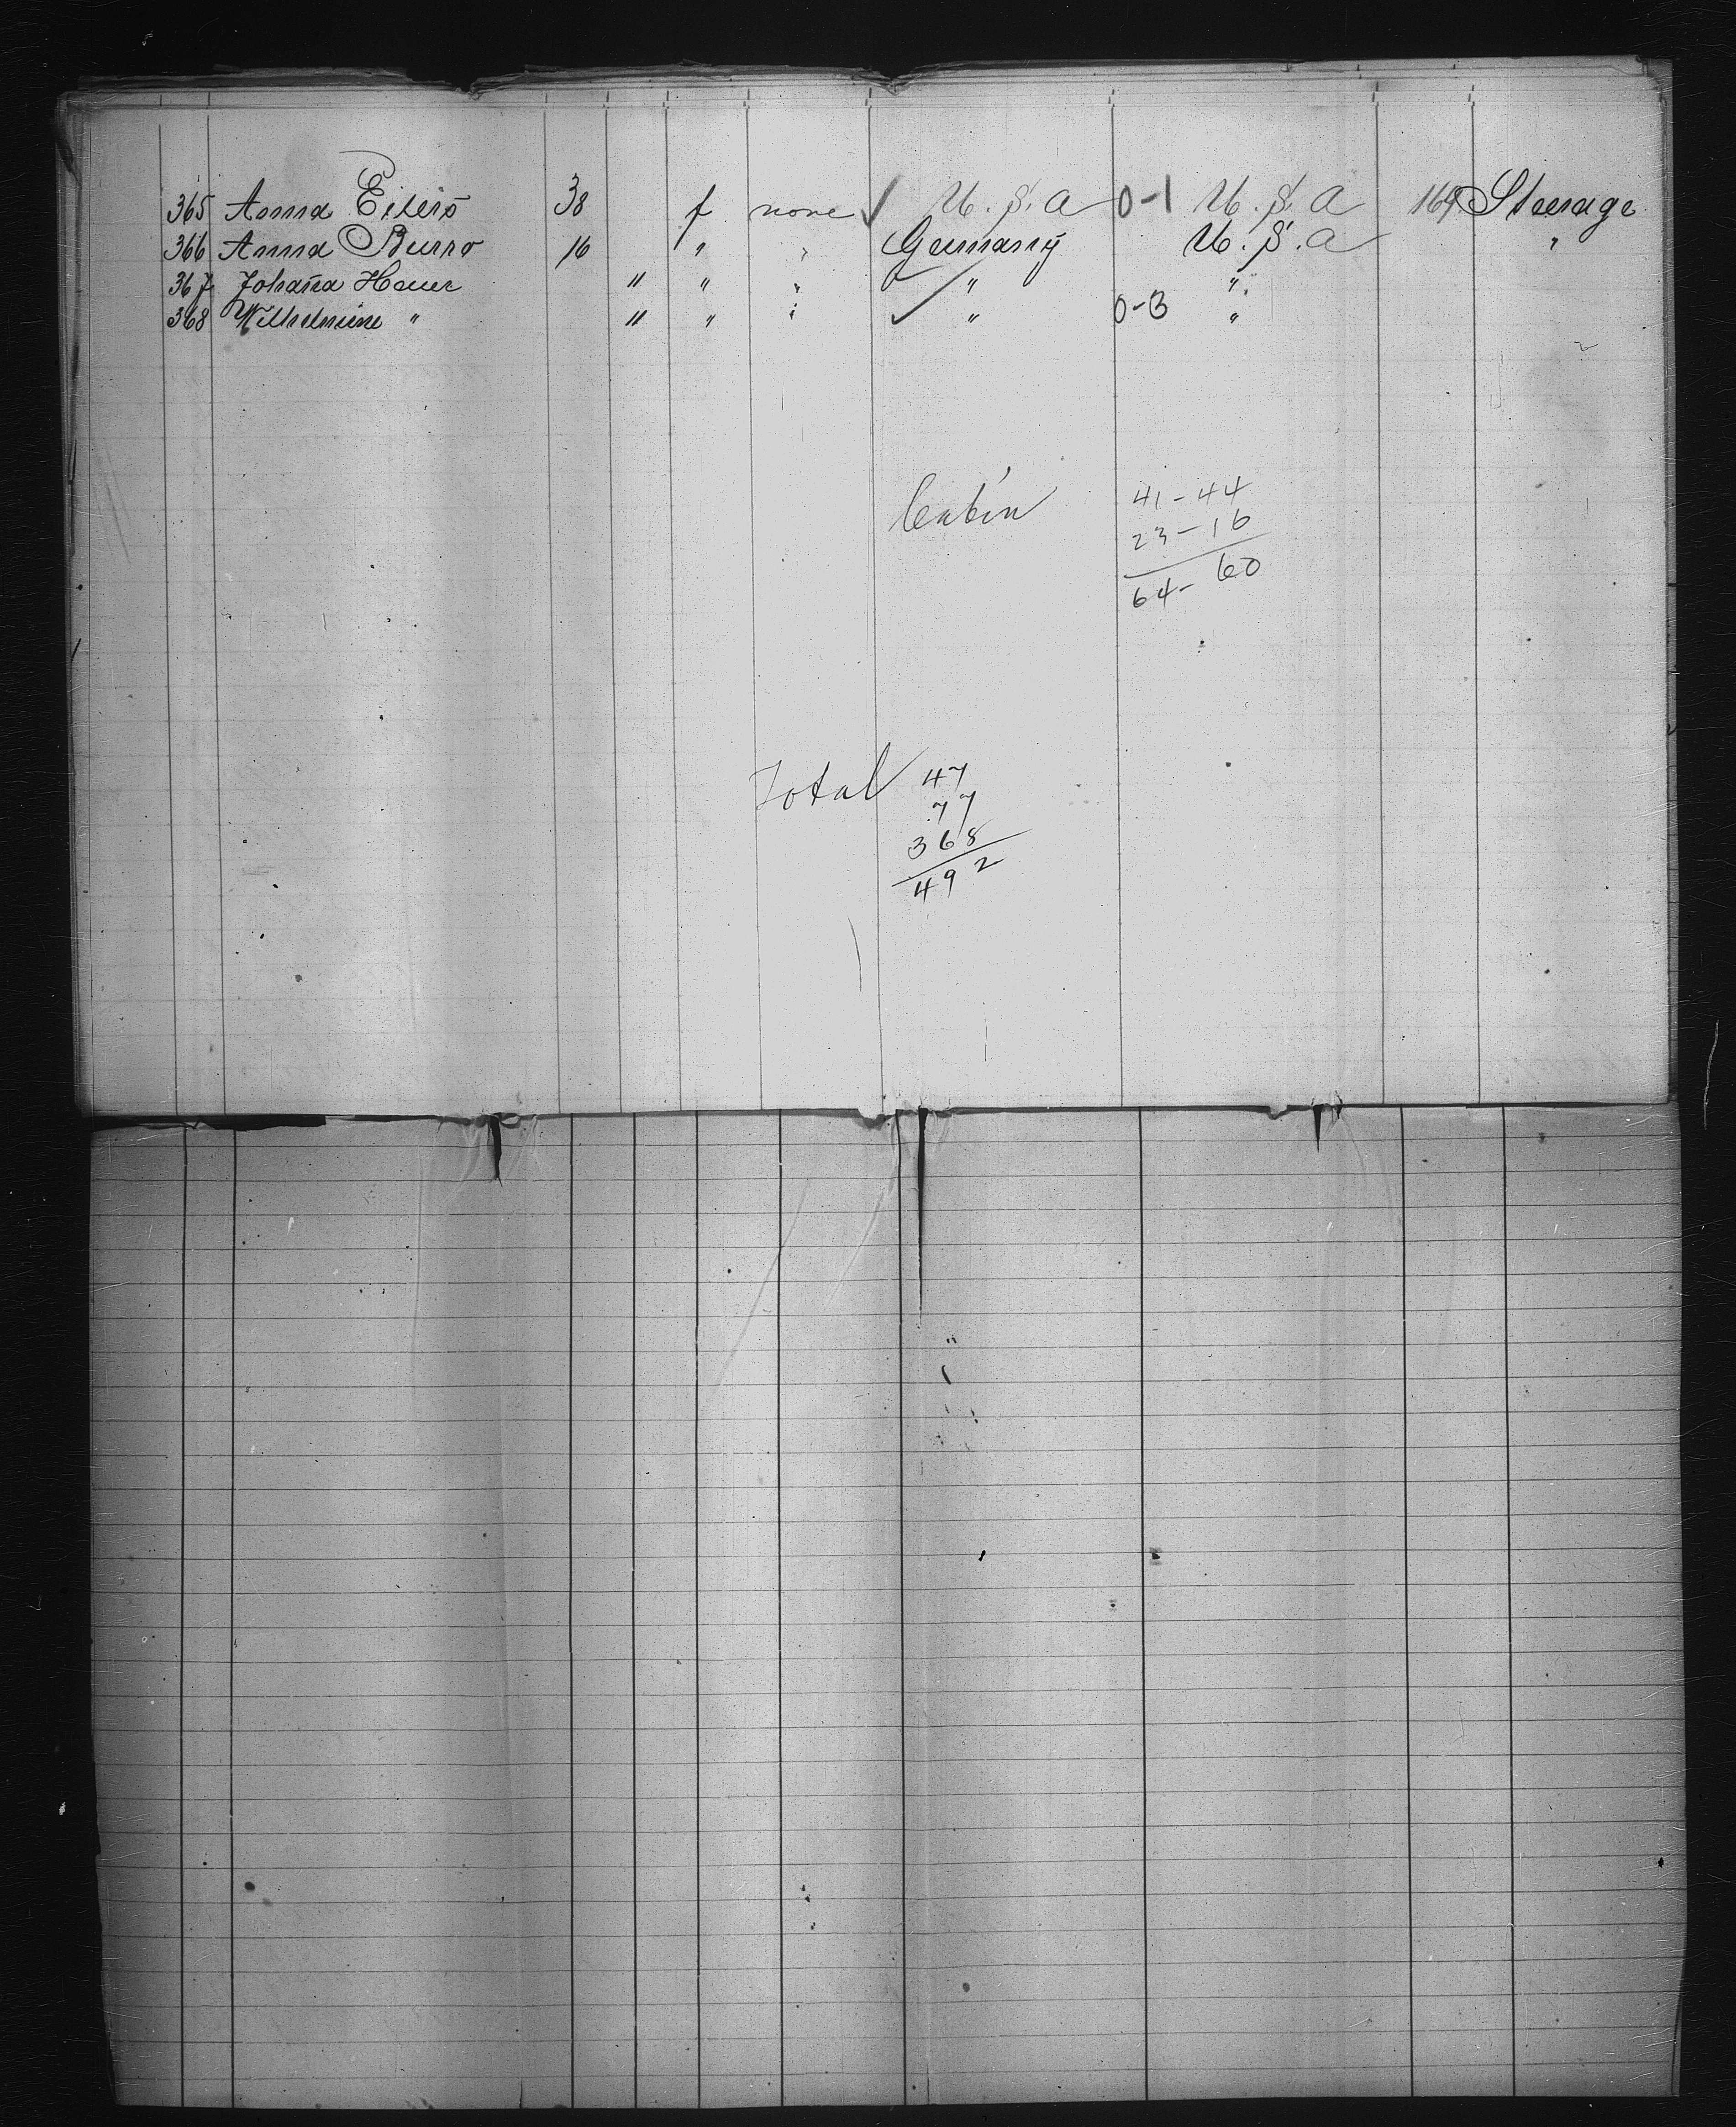 365 Anna Eilers 38 f none U. S. A 0-1 U. S. A 169 Steerage
366 Anna Burro 16 " " Germany U. S. A "
367 Johanna Hauer " " " " "
368 Wilhelmine " " " " " 0-3 "
Cabin 41-44
23-16
64-60
Total 47
77
368
492